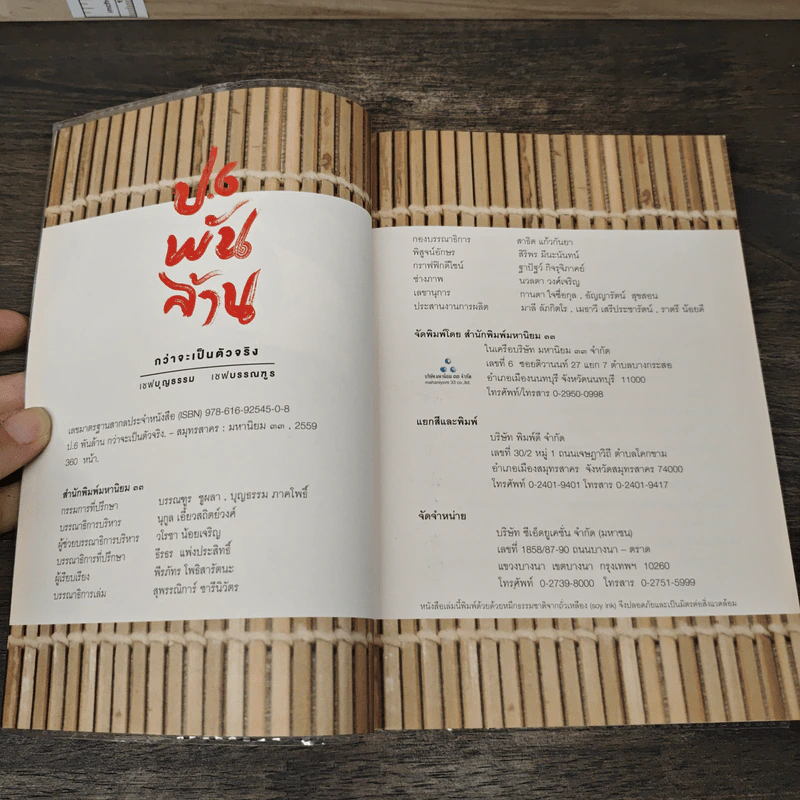 ป.๖
พัน
ล้าน
กว่าจะเป็นตัวจริง
เชฟบุญธรรม เชฟบรรณฑูร
เลขมาตรฐานสากลประจำหนังสือ (ISBN) 978-616-92545-0-8
ป.6 พันล้าน กว่าจะเป็นตัวจริง. – สมุทรสาคร : มหานิยม ๓๓ , 2559
360 หน้า.
สำนักพิมพ์มหานิยม ๓๓
กรรมการที่ปรึกษา บรรณฑูร ชูผลา , บุญธรรม ภาคโพธิ์
บรรณาธิการบริหาร นุกูล เอี้ยวสถิตย์วงศ์
ผู้ช่วยบรรณาธิการบริหาร วโรชา น้อยเจริญ
บรรณาธิการที่ปรึกษา ธีรธร แพ่งประสิทธิ์
ผู้เรียบเรียง พีรภัทร โพธิสารัตนะ
บรรณาธิการเล่ม สุพรรณิการ์ ชารีนิวัตร
กองบรรณาธิการ สาธิต แก้วกันยา
พิสูจน์อักษร สิริพร มีนะนันทน์
กราฟฟิกดีไซน์ ฐาปัฐว์ กิจรุจิภาคย์
ช่างภาพ นวลตา วงศ์เจริญ
เลขานุการ กานดา ใจซื่อกุล , อัญญารัตน์ สุขสอน
ประสานงานการผลิต มาลี ลักกิตโร , เมธาวี เสรีประชารัตน์ , ราตรี น้อยดี
จัดพิมพ์โดย สำนักพิมพ์มหานิยม ๓๓
ในเครือบริษัท มหานิยม ๓๓ จำกัด
เลขที่ 6 ซอยติวานนท์ 27 แยก 7 ตำบลบางกระสอ
บริษัทมหานิยม ๓๓ จำกัด
mahaniyom 33 co.,ltd.
อำเภอเมืองนนทบุรี จังหวัดนนทบุรี 11000
โทรศัพท์/โทรสาร 0-2950-0998
แยกสีและพิมพ์
บริษัท พิมพ์ดี จำกัด
เลขที่ 30/2 หมู่ 1 ถนนเจษฎาวิถี ตำบลโคกขาม
อำเภอเมืองสมุทรสาคร จังหวัดสมุทรสาคร 74000
โทรศัพท์ 0-2401-9401 โทรสาร 0-2401-9417
จัดจำหน่าย
บริษัท ซีเอ็ดยูเคชั่น จำกัด (มหาชน)
เลขที่ 1858/87-90 ถนนบางนา – ตราด
แขวงบางนา เขตบางนา กรุงเทพฯ 10260
โทรศัพท์ 0-2739-8000 โทรสาร 0-2751-5999
หนังสือเล่มนี้พิมพ์ด้วยด้วยหมึกธรรมชาติจากถั่วเหลือง (soy ink) จึงปลอดภัยและเป็นมิตรต่อสิ่งแวดล้อม